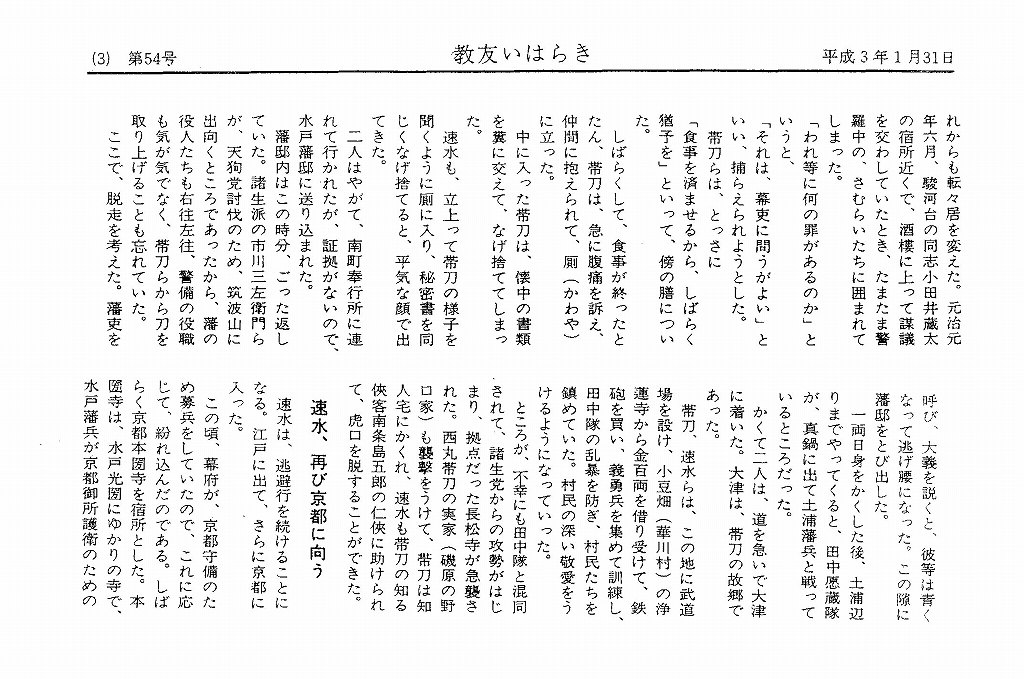 (3) 第54号
教友いはらき
平成3年1月31日
れからも転々居を変えた。元治元
年六月、駿河台の同志小田井蔵太
の宿所近くで、酒樓に上って謀議
を交わしていたとき、たまたま警
羅中の、さむらいたちに囲まれて
しまった。
「われ等に何の罪があるのか」と
いうと、
「それは、幕吏に問うがよい」と
いい、捕らえられようとした。
帯刀らは、とっさに
「食事を済ませるから、しばらく
猶子を」といって、傍の膳につい
た。
しばらくして、食事が終ったと
たん、帯刀は、急に腹痛を訴え、
仲間に抱えられて、厠(かわや)
に立った。
中に入った帯刀は、懐中の書類
を糞に交えて、なげ捨ててしまっ
た。
速水も、立上って帯刀の様子を
聞くように厠に入り、秘密書を同
じくなげ捨てると、平気な顔で出
てきた。
二人はやがて、南町奉行所に連
れて行かれたが、証拠がないので、
水戸藩邸に送り込まれた。
藩邸内はこの時分、ごった返し
ていた。諸生派の市川三左衛門ら
が、天狗党討伐のため、筑波山に
出向くところであったから、藩の
役人たちも右往左往、警備の役職
も気が気でなく、帯刀らから刀を
取り上げることも忘れていた。
ここで、脱走を考えた。藩吏を
呼び、大義を説くと、彼等は青く
なって逃げ腰になった。この隙に
藩邸をとび出した。
一両日身をかくした後、土浦辺
りまでやってくると、田中愿蔵隊
が、真鍋に出て土浦藩兵と戦って
いるところだった。
かくて二人は、道を急いで大津
に着いた。大津は、帯刀の故郷で
あった。
帯刀、速水らは、この地に武道
場を設け、小豆畑(華川村)の浄
蓮寺から金百両を借り受けて、鉄
砲を買い、義勇兵を集めて訓練し、
田中隊の乱暴を防ぎ、村民たちを
鎮めていた。村民の深い敬愛をう
けるようになっていった。
ところが、不幸にも田中隊と混同
されて、諸生党からの攻勢がはじ
まり、拠点だった長松寺が急襲さ
れた。西丸帯刀の実家(磯原の野
口家)も襲撃をうけて、帯刀は知
人宅にかくれ、速水も帯刀の知る
侠客南条島五郎の仁侠に助けられ
て、虎口を脱することができた。
速水、再び京都に向う
速水は、逃避行を続けることに
なる。江戸に出て、さらに京都に
入った。
この頃、幕府が、京都守備のた
め募兵をしていたので、これに応
じて、紛れ込んだのである。しば
らく京都本圀寺を宿所とした。本
圀寺は、水戸光圀にゆかりの寺で、
水戸藩兵が京都御所護衛のための